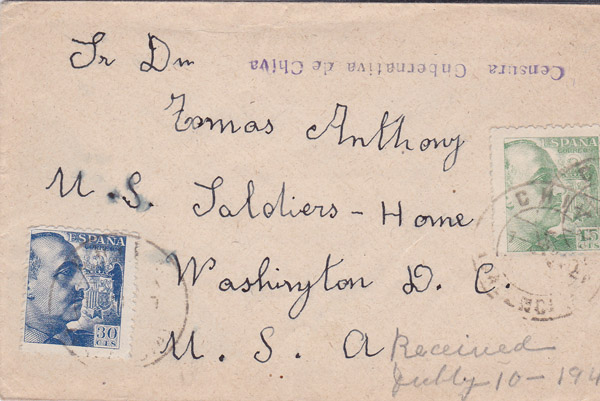 Sr Dn
Censura Gubernativa de Chiva
Tomas Anthony
U. S. Saldiers - Home
Washington D. C.
U. S. A
Received
Jully 10 - 194
ESPAÑA
CORREOS
15
CTS
CHIVA
VALENCIA
ESPAÑA
30
CTS